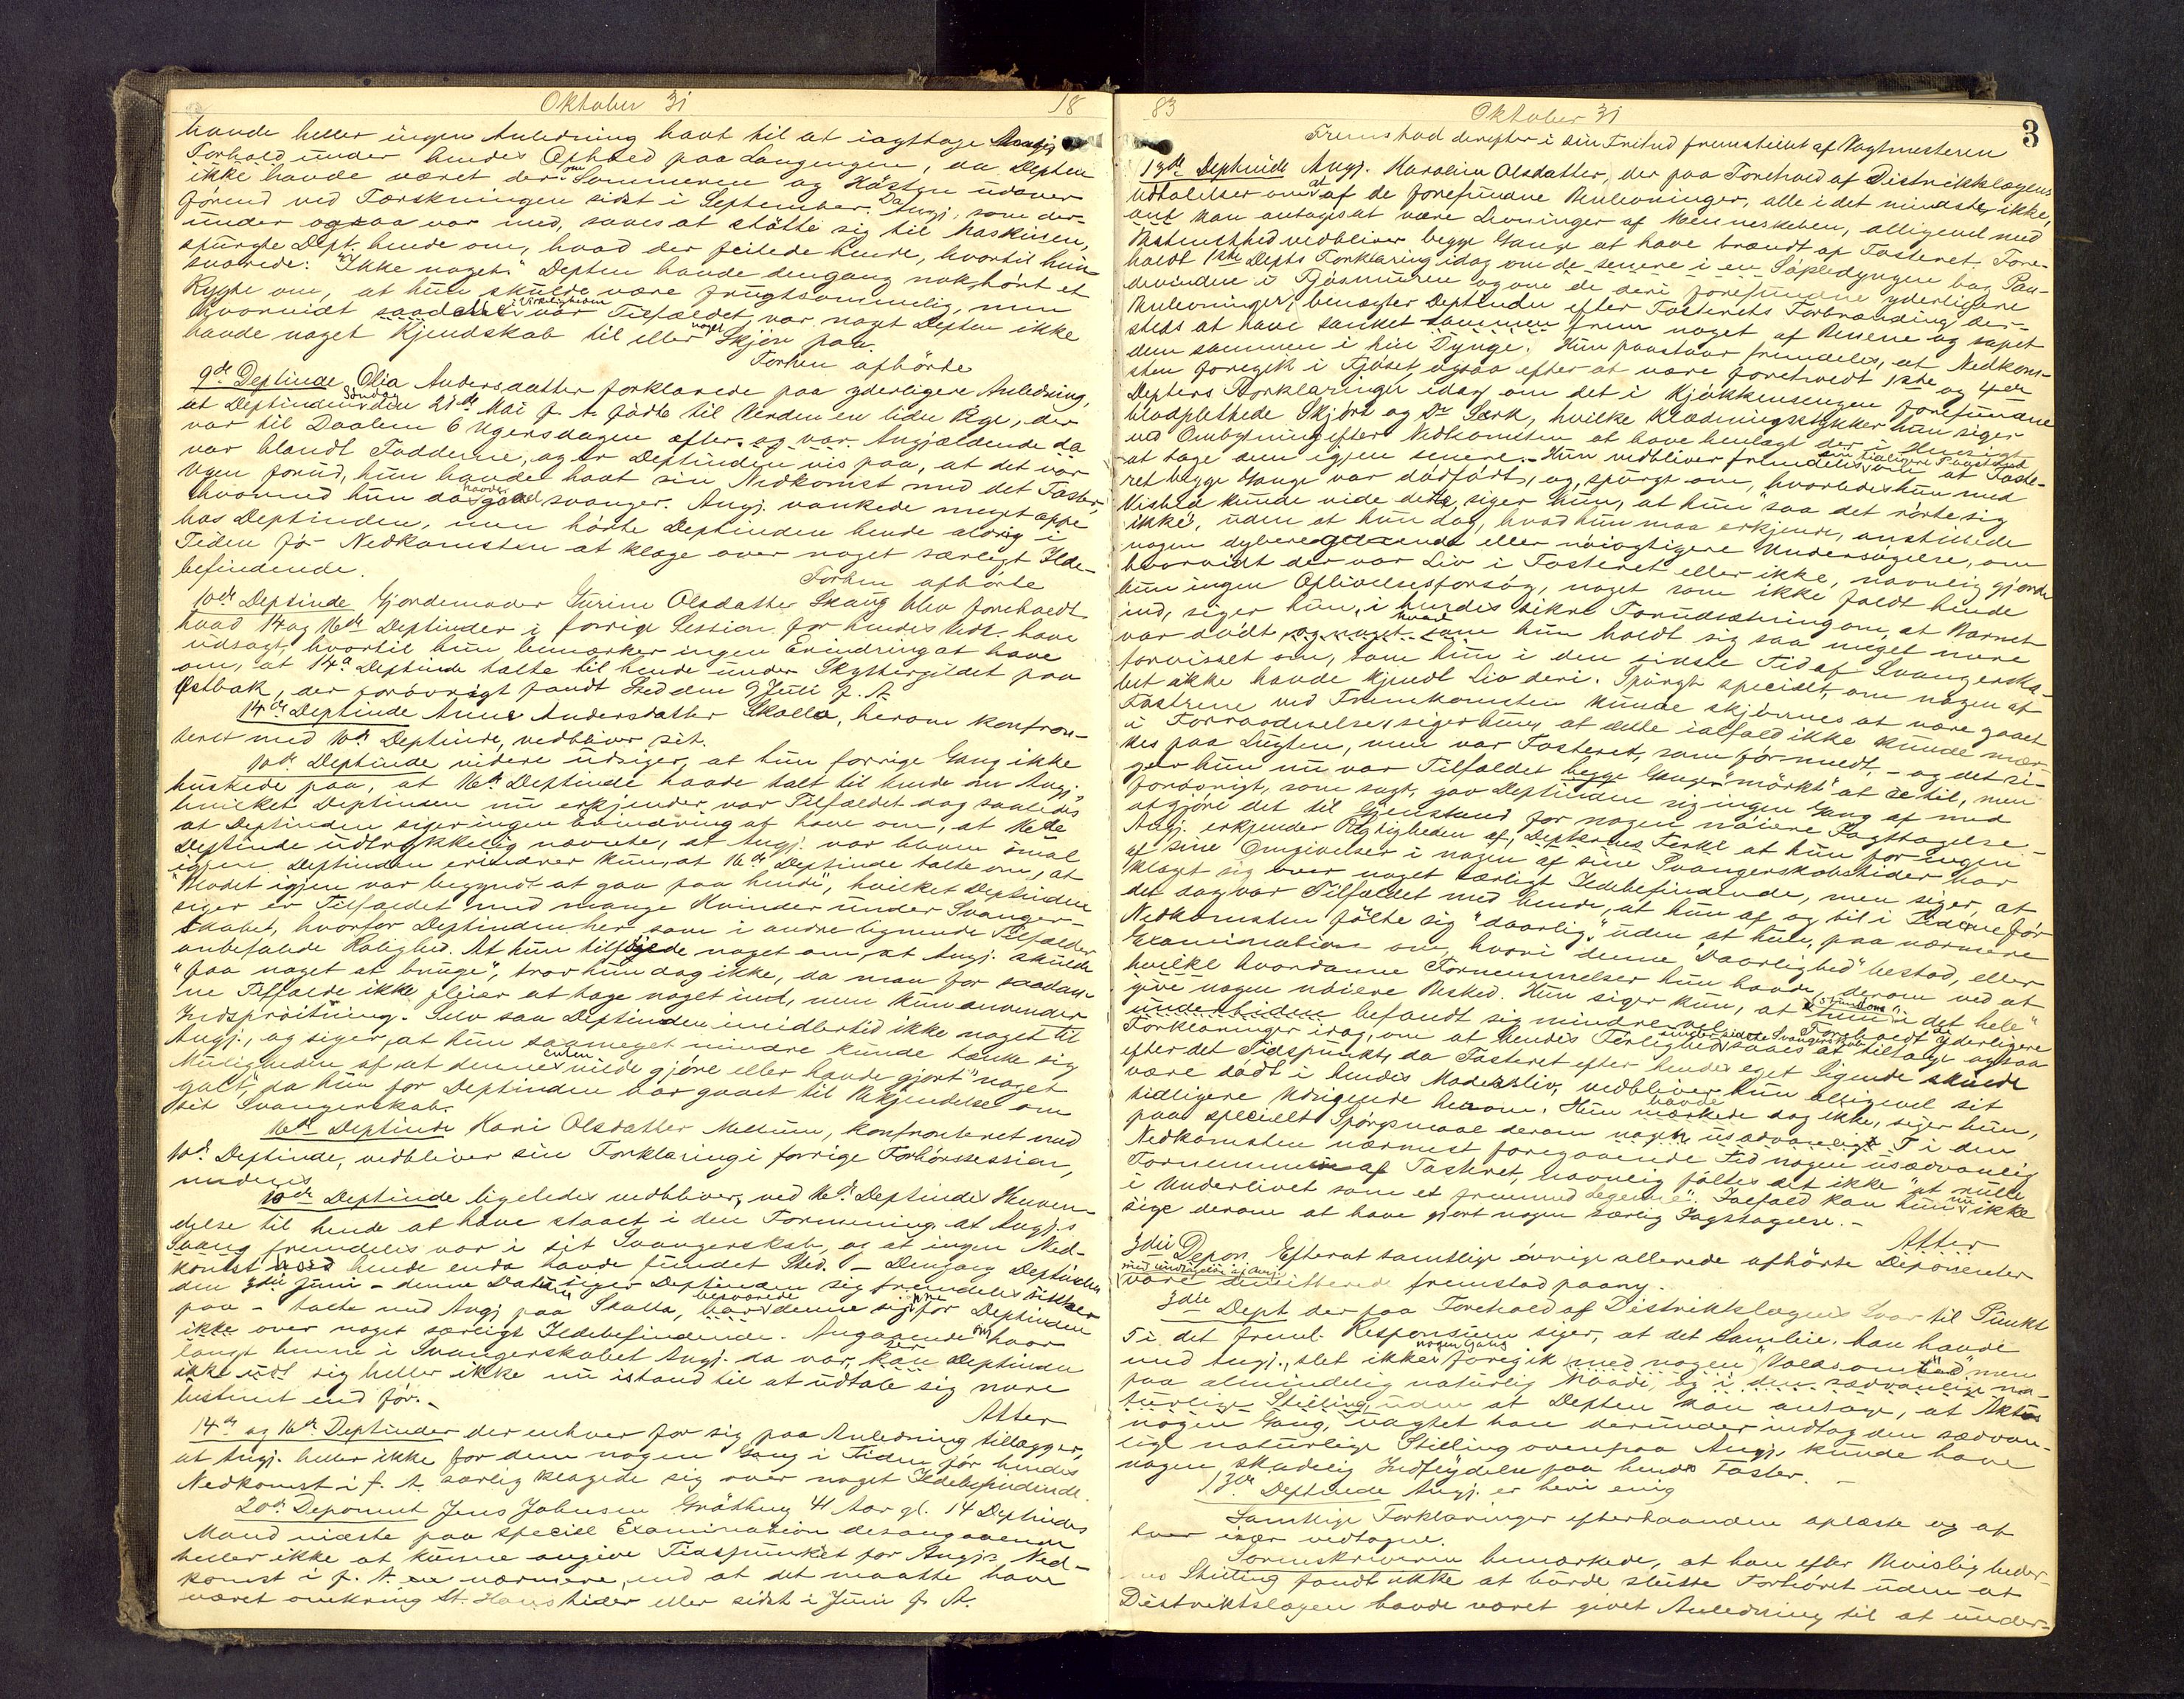 Oktober 31 18
havde heller ingen Anledning havt til at iagttage Angj.
Forhold under hendes Ophold paa Langengen, da Depten
ikke havde været der om Sommeren og Hösten udover
förend ved Tærskningen sidst i September. Da Angj., som der-
under ogsaa var med, saaes at stötte sig til Maskinen,
spurgte Dept. hende om, hvad der feilede hende, hvortil hun
svarede: "Ikke noget." Depten havde dengang nok hört et
Rygte om, at hun skulde være frugtsommelig, men
hvorvidt saadant i Virkeligheden var Tilfældet, var noget Depten ikke
havde noget Kjendskab til eller noget Skjön paa.
Forhen afhörte
9de Deptinde Olia Andersdatter forklarede paa yderligere Anledning,
at Deptinden Söndag den 21de Mai f. A. födte til Verden en liden Pige, der
var til Daaben 6 Ugersdagen efter, og var Angjældende da
var blandt Fadderne, og er Deptinden vis paa, at det var
Ugen forud, hun havde havt sin Nedkomst med det Foster,
hvormed hun da havde gaaet svanger. Angj. vankede meget ofte
hos Deptinden, men hörte Deptinden hende aldrig i
Tiden för Nedkomsten at klage over noget særligt Ilde-
befindende.
Forhen afhörte
10de Deptinde Gjordemoder Gurine Olsdatter Skaug blev foreholdt
hvad 14 og 16de Deptinder i forrige Session for hendes Vedk. have
udsagt, hvortil hun bemærker ingen Erindring at have
om, at 14de Deptinde talte til hende under Skyttergildet paa
Østbak, der forövrigt fandt Sted den 9 Juli f. A.
14de Deptinde Anne Andersdatter Skolla, herom konfron-
teret med 10de Deptinde, vedbliver sit.
10de Deptinde videre udsiger, at hun forrige Gang ikke
huskede paa, at 16de Deptinde havde talt til hende om Angj.,
hvilket Deptinden nu erkjender var Tilfældet dog saaledes
at Deptinden siger ingen Erindring at have om, at 16de
Deptinde udtrykkelig nævnte, at Angj. var bleven smal
igjen. Deptinden erindrer kun, at 16de Deptinde talte om, at
"Blodet igjen var begyndt at gaa paa hende", hvilket Deptinden
siger er Tilfældet med mange Kvinder under Svanger-
skabet, hvorfor Deptinden her som i andre lignende Tilfælder
anbefalede Rolighed. At hun tilföjede noget om, at Angj. skulde
"faa noget at bruge", tror hun dog ikke, da man for saadan-
ne Tilfælde ikke pleier at tage noget ind, men kun anvender
Indspröitning. Selv saa Deptinden imidlertid ikke noget til
Angj., og siger, at hun saameget mindre kunde tænke sig
Muligheden af at denne enten vilde gjöre eller havde gjort "noget
galt", da hun for Deptinden var gaaet til Bekjendelse om
sit Svangerskab.
16de Deptinde Kari Olsdatter Mellum, konfronteret med
10de Deptinde, vedbliver sin Forklaring i forrige Forhörssession,
medens
10de Deptinde ligeledes vedbliver, ved 16de Deptindes Henven-
delse til hende at have staaet i den Formening, at Angj.s
Svang fremdeles var i sit Svangerskab, og at ingen Ned-
komst hos hende endd havde fundet Sted. – Dengang Deptinden
den 3die Juni – denne Datum siger Deptinden sig fremdeles sikker
paa – talte med Angj. paa Skolla, besværede denne sig for Deptinden
ikke over noget særligt Ildebefindende. Angaaende om hvor
langt henne i Svangerskabet Angj. da var, ser Deptinden
ikke sig heller ikke nu istand til at udtale sig mere
bestemt end för.–
Atter
14de og 16de Deptinder der enhver for sig paa Anledning tillægger,
at Angj. heller ikke for dem nogen Gang i Tiden för hendes
Nedkomst i f. A. særlig klagede sig over noget Ildebefindende.
20de Deponent Jens Johnsen Gråthung 41 Aar gl. 14 Deptindes
Mand vidste paa speciel Examination desangaaende
heller ikke at kunne angive Tidspunktet for Angj.s Ned-
komst i f. A. nærmere, end at det maatte have
været omkring St. Hans tider eller sidst i Juni f. A.
83 Oktober 31 3
Fremstod derefter i sin Fritud fremstillet af Vagtmesteren
13de Deptinde Angj. Karoline Olsdatter, der paa Forehold af Distriktslægens
udtalelser om at af de forefundne Benlevninger, alle i det mindste, ikke,
ant kan antages at være Levninger af Menneskeben, alligevel med
Bestemthed vedbliver begge Gange at have brændt op Fosteret. Fore-
holdt 1ste Depts Forklaring idag om de senere i en Söpledyngen bag Pan-
devinden i Fjösmuren og om de deri forefundne yderligere
Benlevninger, benægter Deptinden efter Fosterets Forbrænding der-
steds at have sanket frem noget af Benene og sopet
dem sammen i hin Dynge. Hun paastaar fremdeles, at Nedkom-
sten foregik i Fjöset, ogsaa efter at være foreholdt 1ste og 4de
Depters Forklaringer idag om det i Kjökkensengen forefundne
blodplettede Skjört og Do Særk, hvilke Klædningsstykker hun siger
ved Ombytning efter Nedkomsten at have henlagt der i Hensigt
at tage dem igjen senere.– Hun vedbliver fremdeles sin tidligere Paastand om at Foste-
ret begge Gange var dödfödt, og, spurgt om, hvorledes hun med
Vished kunde vide dette, siger hun, at hun "saa det rörte sig
ikke", uden at hun dog, hvad hun maa erkjende, anstillede
nogen dybere gaaende eller nöiagtigere Undersögelse, om
hvorvidt der var Liv i Fosteret eller ikke, navnlig gjorde
hun ingen Oplivelsesforsög, noget som ikke faldt hende
ind, siger hun, i hendes sikre Forudsætning om, at Barnet
var dödt, hvad hun holdt sig saa meget mere
forvisset om, som hun i den sidste Tid af Svangerska-
bet ikke havde kjendt Liv deri. Spurgt specielt, om nogen af
Fostrene ved Fremkomsten kunde skjönnes at være gaaet
i Forraadnelse, siger hun, at dette ialfald ikke kunde mær-
kes paa Lugten, men var Fosteret, som för meldt, – og det si-
ger hun nu var Tilfældet begge Ganger "mörkt" at se til, men
forövrigt, som sagt, gav Deptinden sig ingen Gang af med
at gjöre det til Gjenstand for nogen nöiere Iagttagelse.–
Angj. erkjender Rigtigheden af, Depternes Forkl. at hun for ingen
af sine Omgivelser i nogen af sine Svangerskabstider har
klaget sig over noget særligt Ildebefindende, men siger, at
det dog var Tilfældet med hende, at hun af og til i Tiderne för
Nedkomsten fölte sig "daarlig", uden at hun, paa nærmere
Examination om, hvori denne "Daarlighed" bestod, eller
hvilke hvordanne Fornemmelser hun havde, derom ved at
give nogen nöiere Besked. Hun siger kun, at hun "stundom" i det hele"
undertiden befandt sig mindre vel. Foreholdt de yderligere
Forklaringer idag, om at hendes Ferlighed under sidste Svangerskab saaes at tiltage ogsaa
efter det Tidspunkt, da Fosteret efter hendes eget Sigende skulde
være dödt i hendes Modersliv, vedbliver hun alligevel sit
tidligere Udsigende herom. Hun havde mærkede dog ikke, siger hun,
paa specielt Spörgsmaal derom nogen usædvanligt i den
Nedkomsten nærmest foregaaende Tid nogen usædvanlig
Fornemmelse af Fosteret, navnlig föltes det ikke "at rulle
i Underlivet som et fremmed Legeme". Ialfald kan hun nu ikke
sige derom at have gjort nogen særlig Iagttagelse.–
Atter
3die Depon. Efterat samtlige övrige allerede afhörte Deponenter
med undtagelse af Angj.
vare dimitterede fremstod paany
3die Dept. der paa Forehold af Distriktslægens Svar til Punkt
5 i det freml. Responsum siger, at det Samleie, han havde
med Angj., slet ikke nogen Gang foregik med nogen "Voldsomhed" men
paa almindelig naturlig Maade, og i den sædvanlige na-
turlige Stilling, uden at Depten kan antage, at Akten
nogen Gang, uagtet han derunder indtog den sædvan-
lige naturlige Stilling ovenpaa Angj., kunde have
nogen skadelig Indflydelse paa hendes Foster.–
13de Deptinde Angj. er heri enig
Samtlige Forklaringer efterhaanden oplæste og af
hver især vedtagne.
Sorenskriveren bemærkede, at han efter Bevislighedernes
Stilling fandt ikke at burde slutte Forhöret uden at
Distriktslægen havde været givet Anledning til at under-